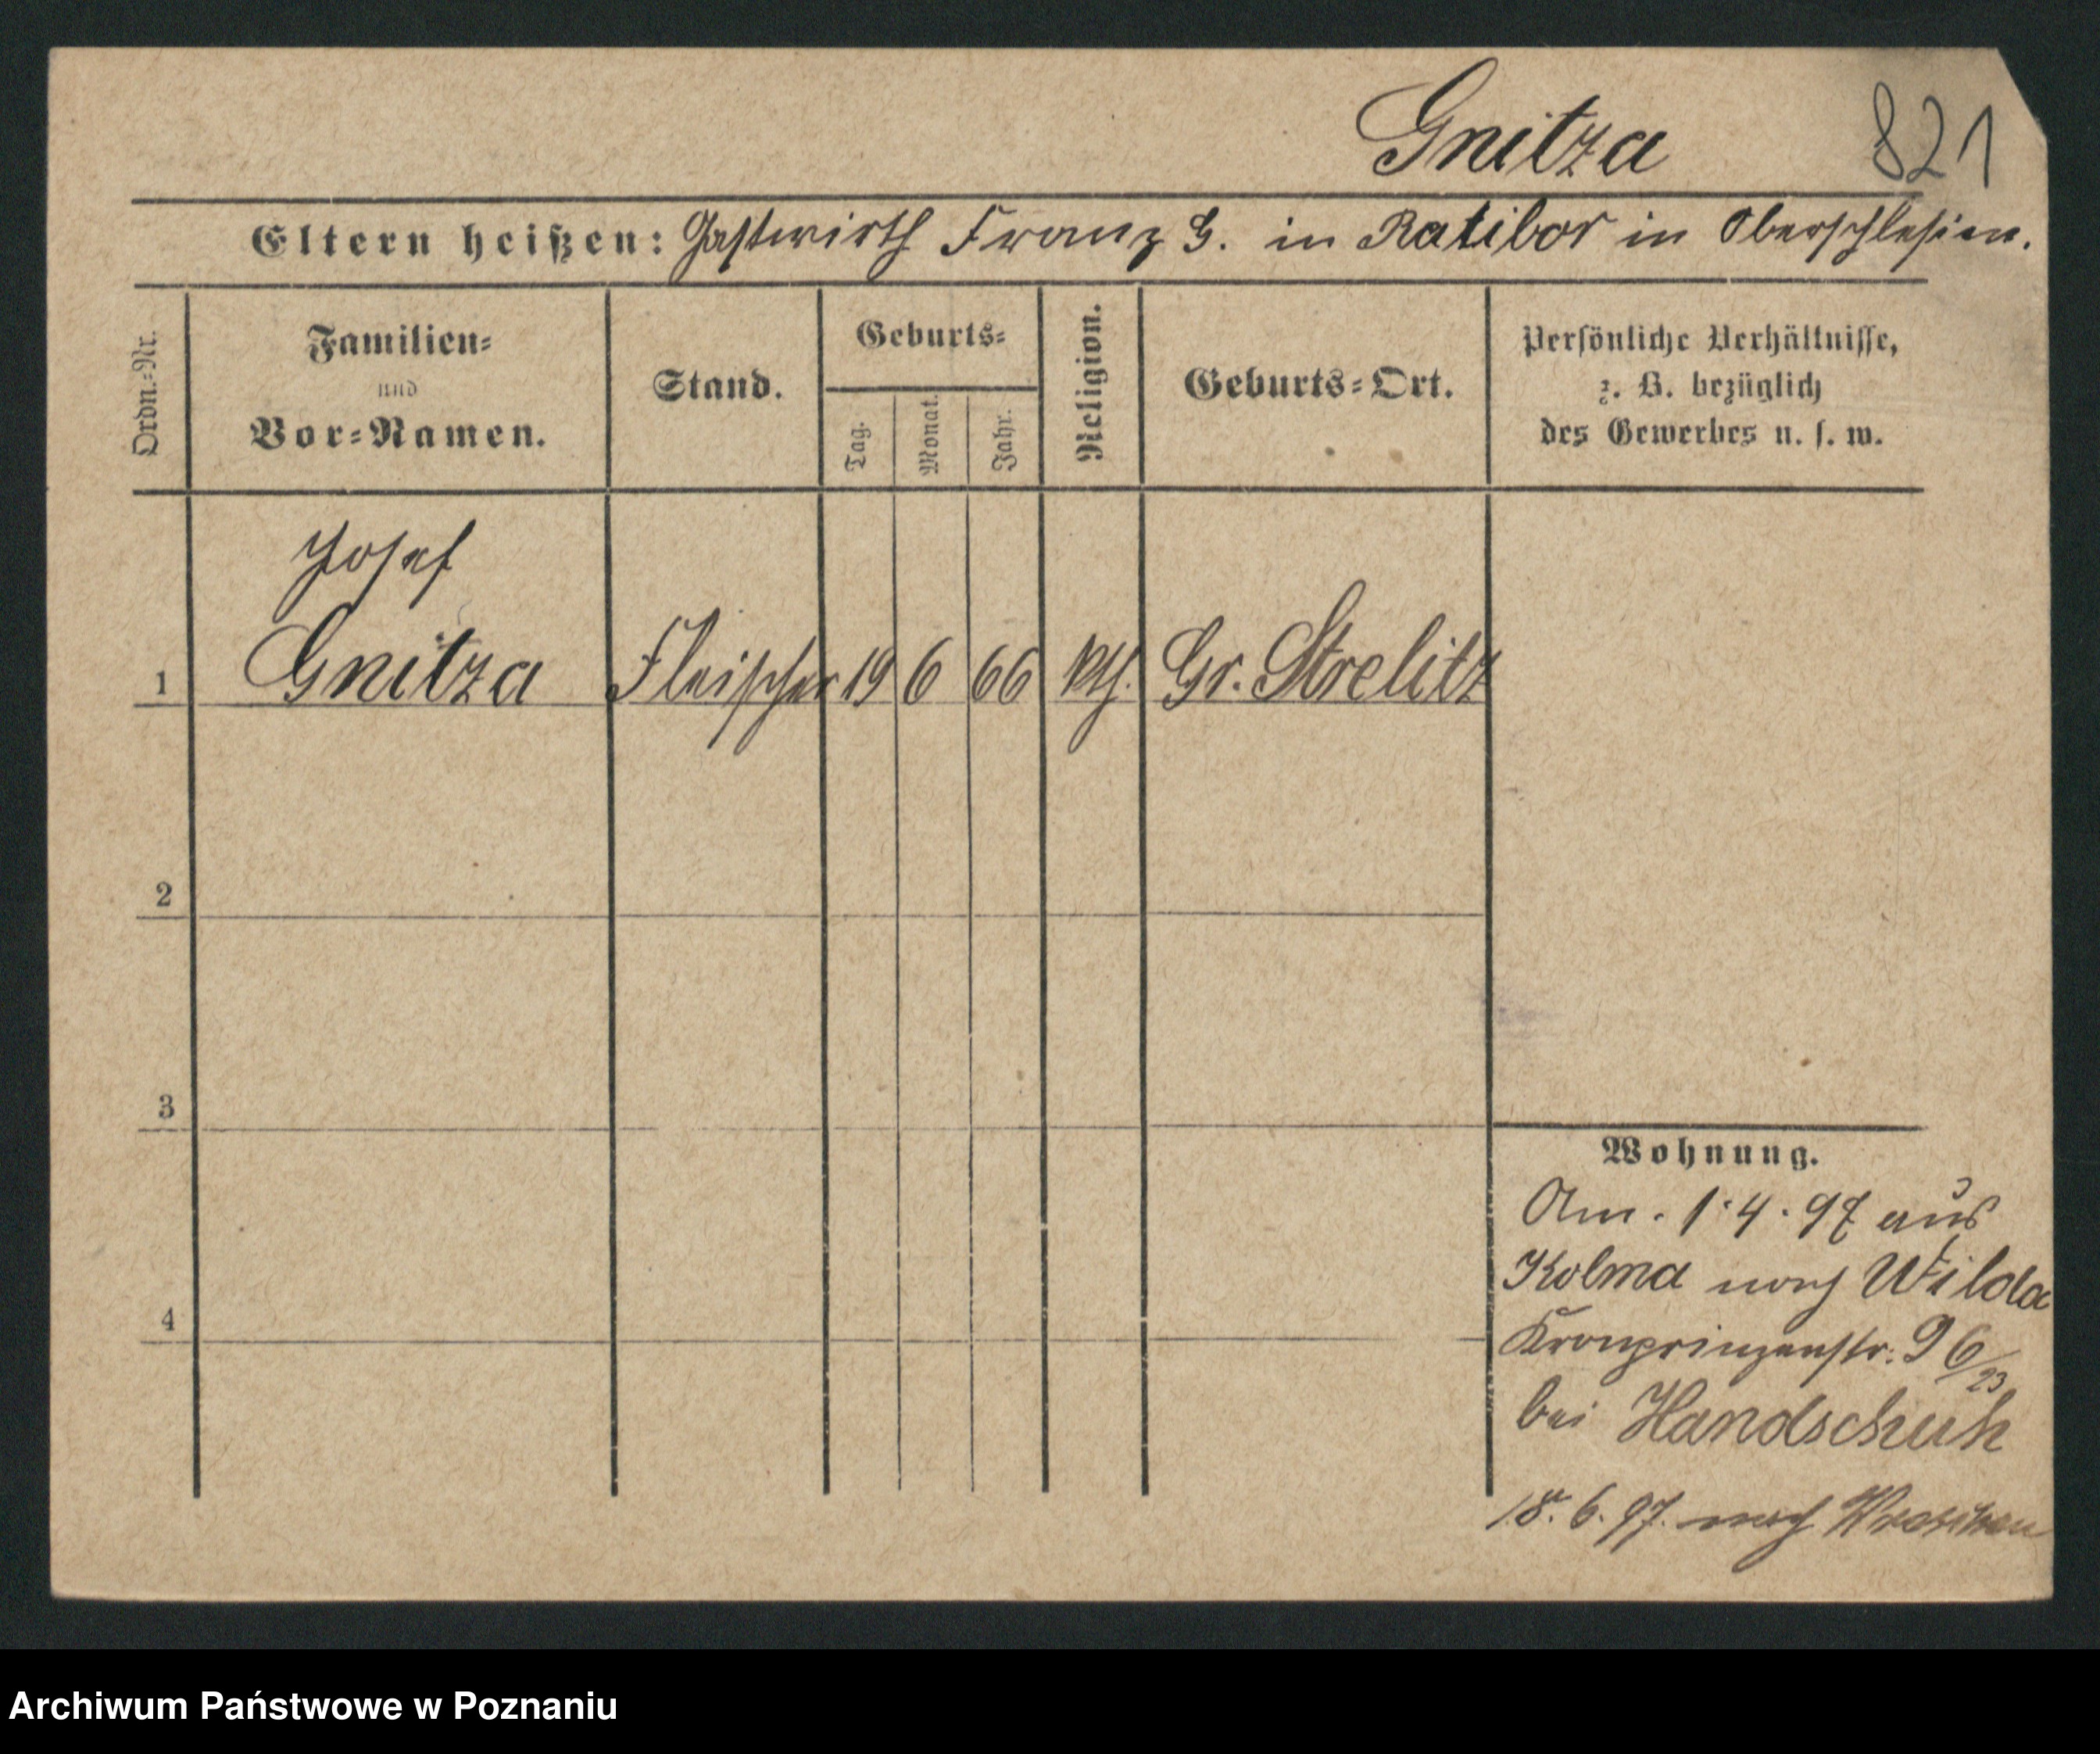 Gnitza 821
Eltern heißen: Gastwirth Franz G. in Ratibor in Oberschlesien.
Ordn.-Nr.
Familien-
und
Vor-Namen.
Stand.
Geburts-
Tag.
Monat.
Jahr.
Religion.
Geburts-Ort.
Persönliche Verhältnisse,
z. B. bezüglich
des Gewerbes u. s. w.
Josef
1 Gnitza Fleischer 19 6 66 kth. Gr. Strelitz
2
3
4
Wohnung.
Am. 1.4.97 aus
Kolma nach Wilda
Kronprinzenstr. 96/23
bei Handschuh
18.6.97. nach
Archiwum Państwowe w Poznaniu